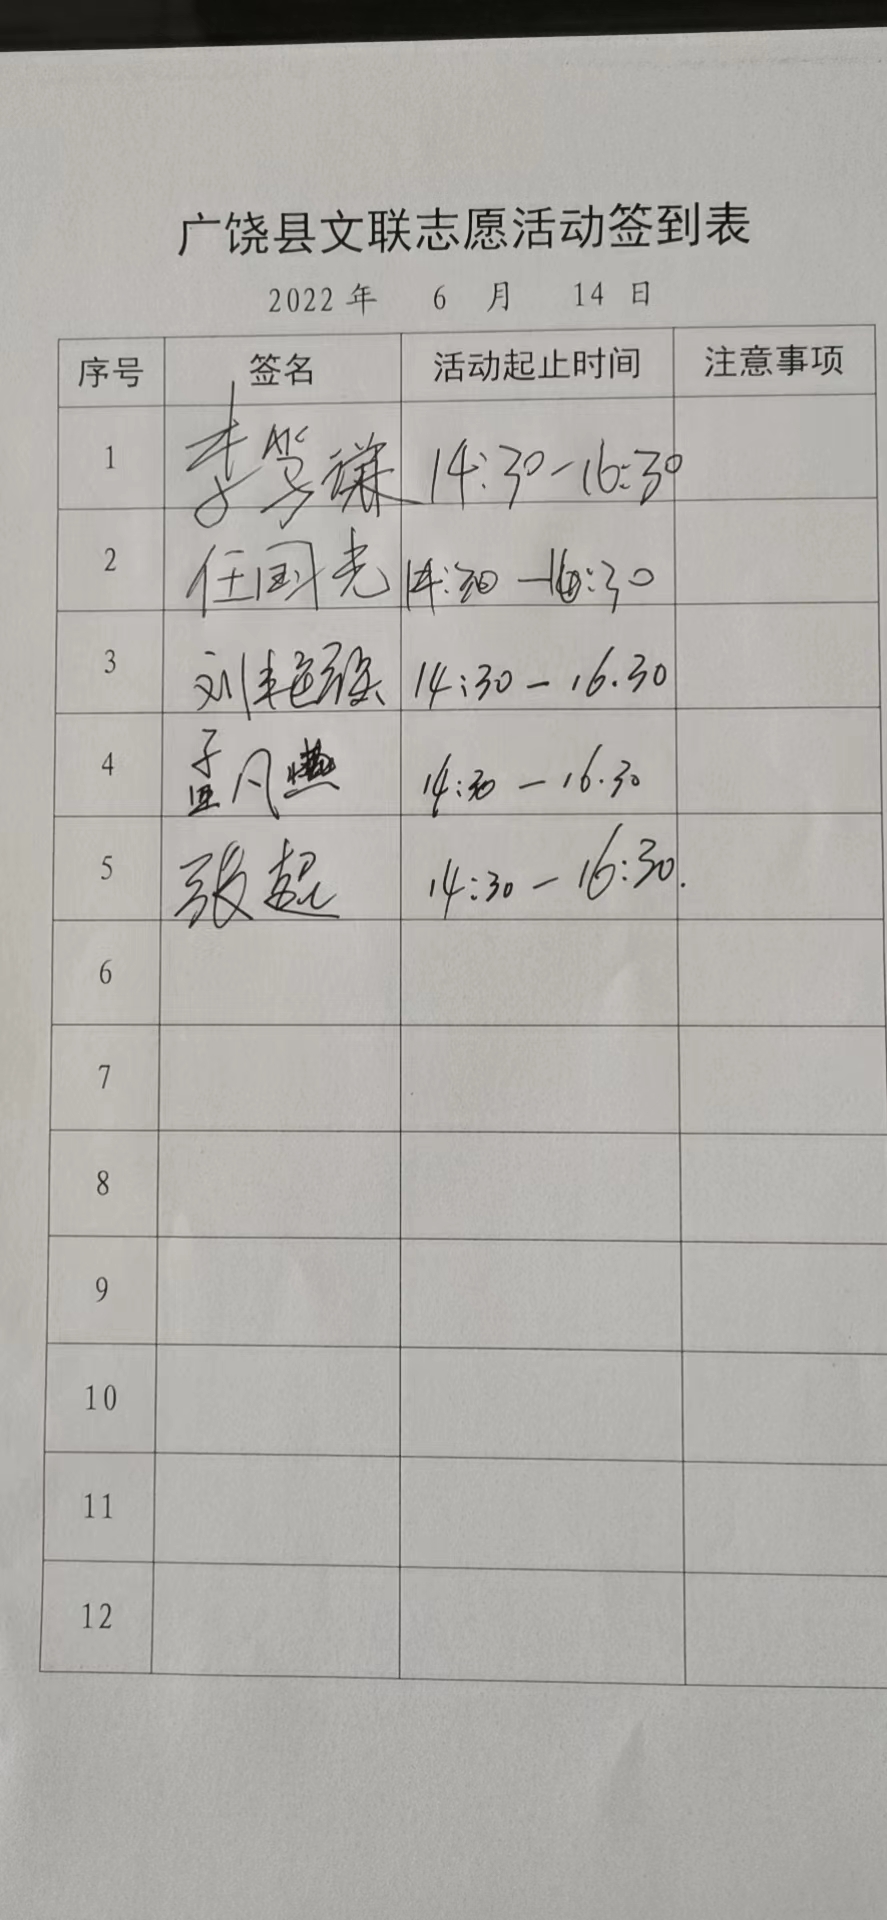 广饶县文联志愿活动签到表
2022 年 6 月 14 日
序号 签名 活动起止时间 注意事项
1 李 14:30-16:30
2 任国光 14:30-16:30
3 刘艳 14:30-16.30
4 孟凡 14:30-16.30
5 张超 14:30-16:30.
6
7
8
9
10
11
12